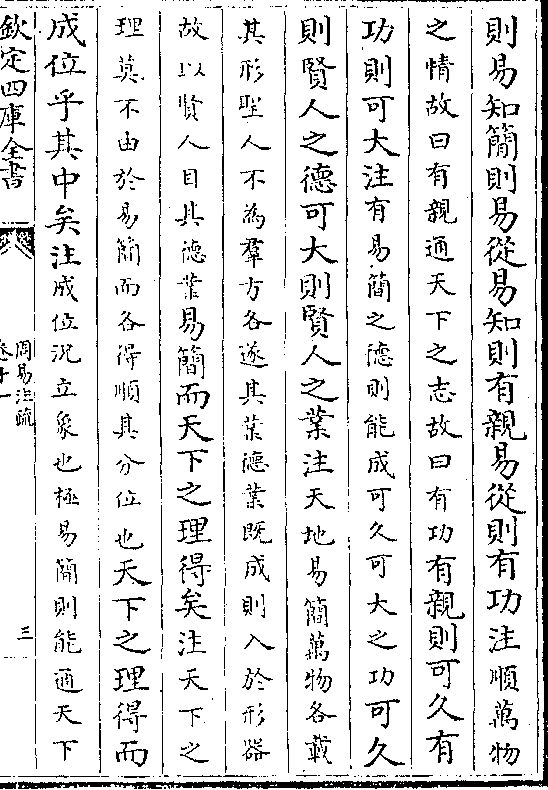 則易知簡則易從易知則有親易從則有功注順萬物
之情故曰有親通天下之志故曰有功有親則可久有
功則可大注有易簡之德則能成可久可大之功可久
則賢人之德可大則賢人之業注天地易簡萬物各載
其形聖人不為羣方各遂其業德業既成則入於形器
故以賢人目其德業易簡而天下之理得矣注天下之
理莫不由於易簡而各得順其分位也天下之理得而
成位乎其中矣注成位況立象也極易簡則能通天下
欽定四庫全書
周易注疏
卷十一
三